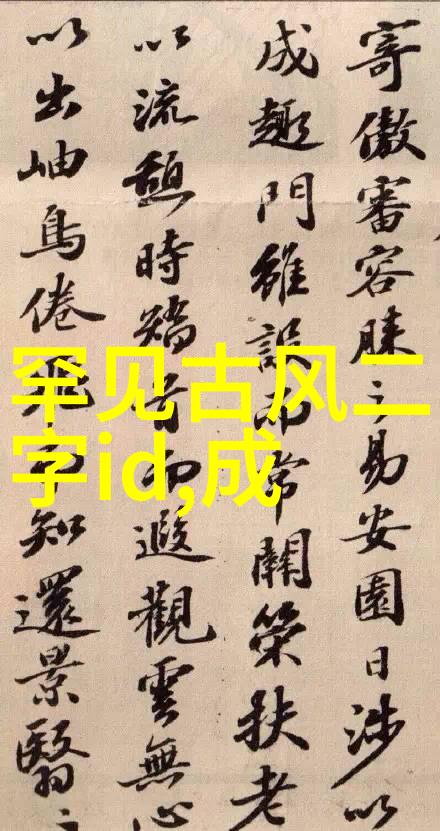 寄傲審容膝之易安園日涉以
成趣門雖設而常關策扶老
以流憩時矯首而遐觀雲無心
以出岫鳥倦飛而知還景翳
罕见古风二
字id,成